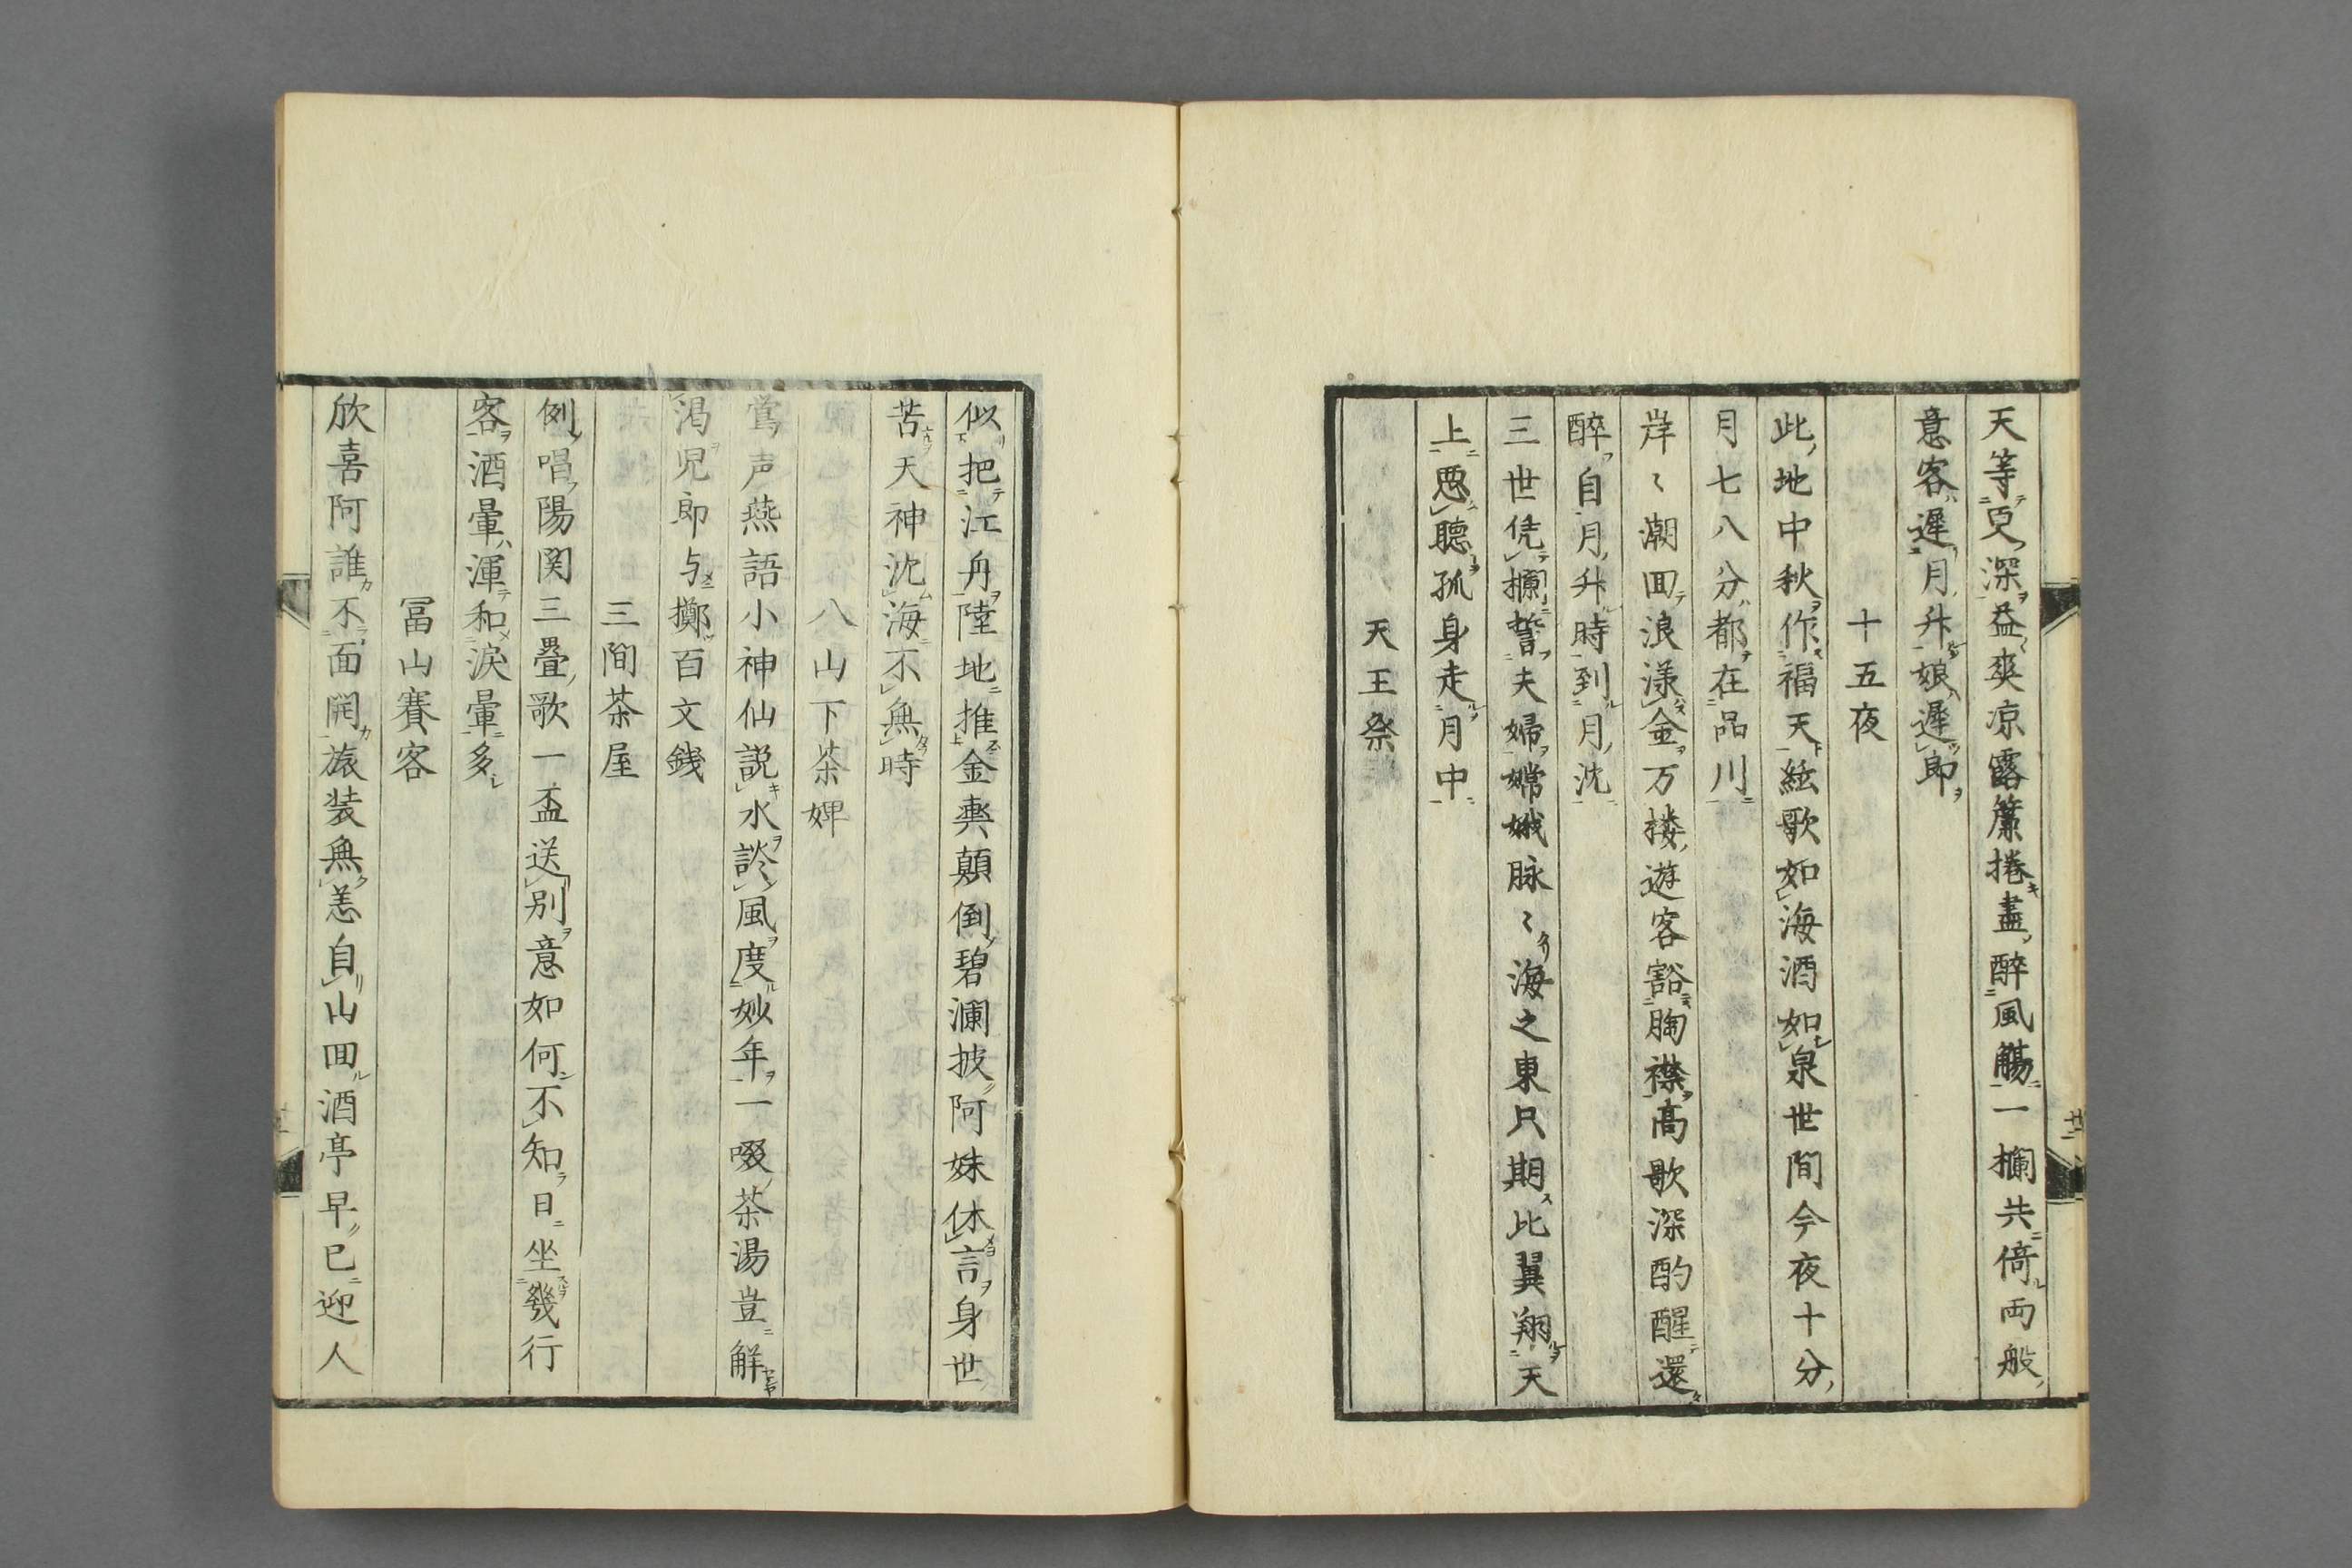 天等更深益爽凉露簾捲盡醉風觴一欄共倚両般
意客遲月升娘遲郎
十五夜
此地中秋作福天絃歌如海酒如泉世間今夜十分
月七八分都在品川
岸〻潮回浪漾金万楼遊客豁胸襟高歌深酌醒還
醉自月升時到月沈
三世凭欄誓夫婦嫦娥脉〻海之東只期比翼翔天
上惡聽孤身走月中
天王祭
似把江舟陸地推金輿顛倒碧瀾披阿妹休言身世
苦天神沈海不無時
八山下茶婢
鶯声燕語小神仙説水談風度妙年一啜茶湯豈解
渇児郎与擲百文銭
三間茶屋
例唱陽関三疊歌一盃送別意如何不知日坐幾行
客酒暈渾和涙暈多
冨山賽客
欣喜阿誰不面開旅装無恙自山回酒亭早已迎人
廿二